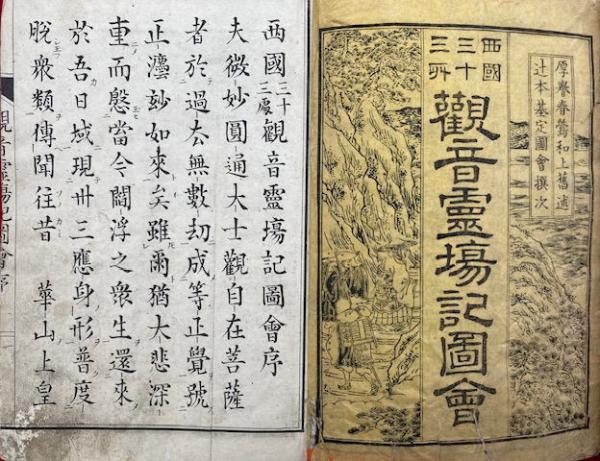 厚譽春鶯和上舊迹
辻本基定圖會撰次
西國
三十
三所
觀音靈塲記圖會
西國三十三處觀音靈塲記圖會序
夫微妙圓通大士觀自在菩薩
者於過去無數刧成等正覺號
正灋玅如來矣雖爾猶大悲深
重而慇當今閻浮之衆生還來
於吾日域現卅三應身形普度
脫衆類傳聞往昔 華山上皇
觀音靈塲記圖會序